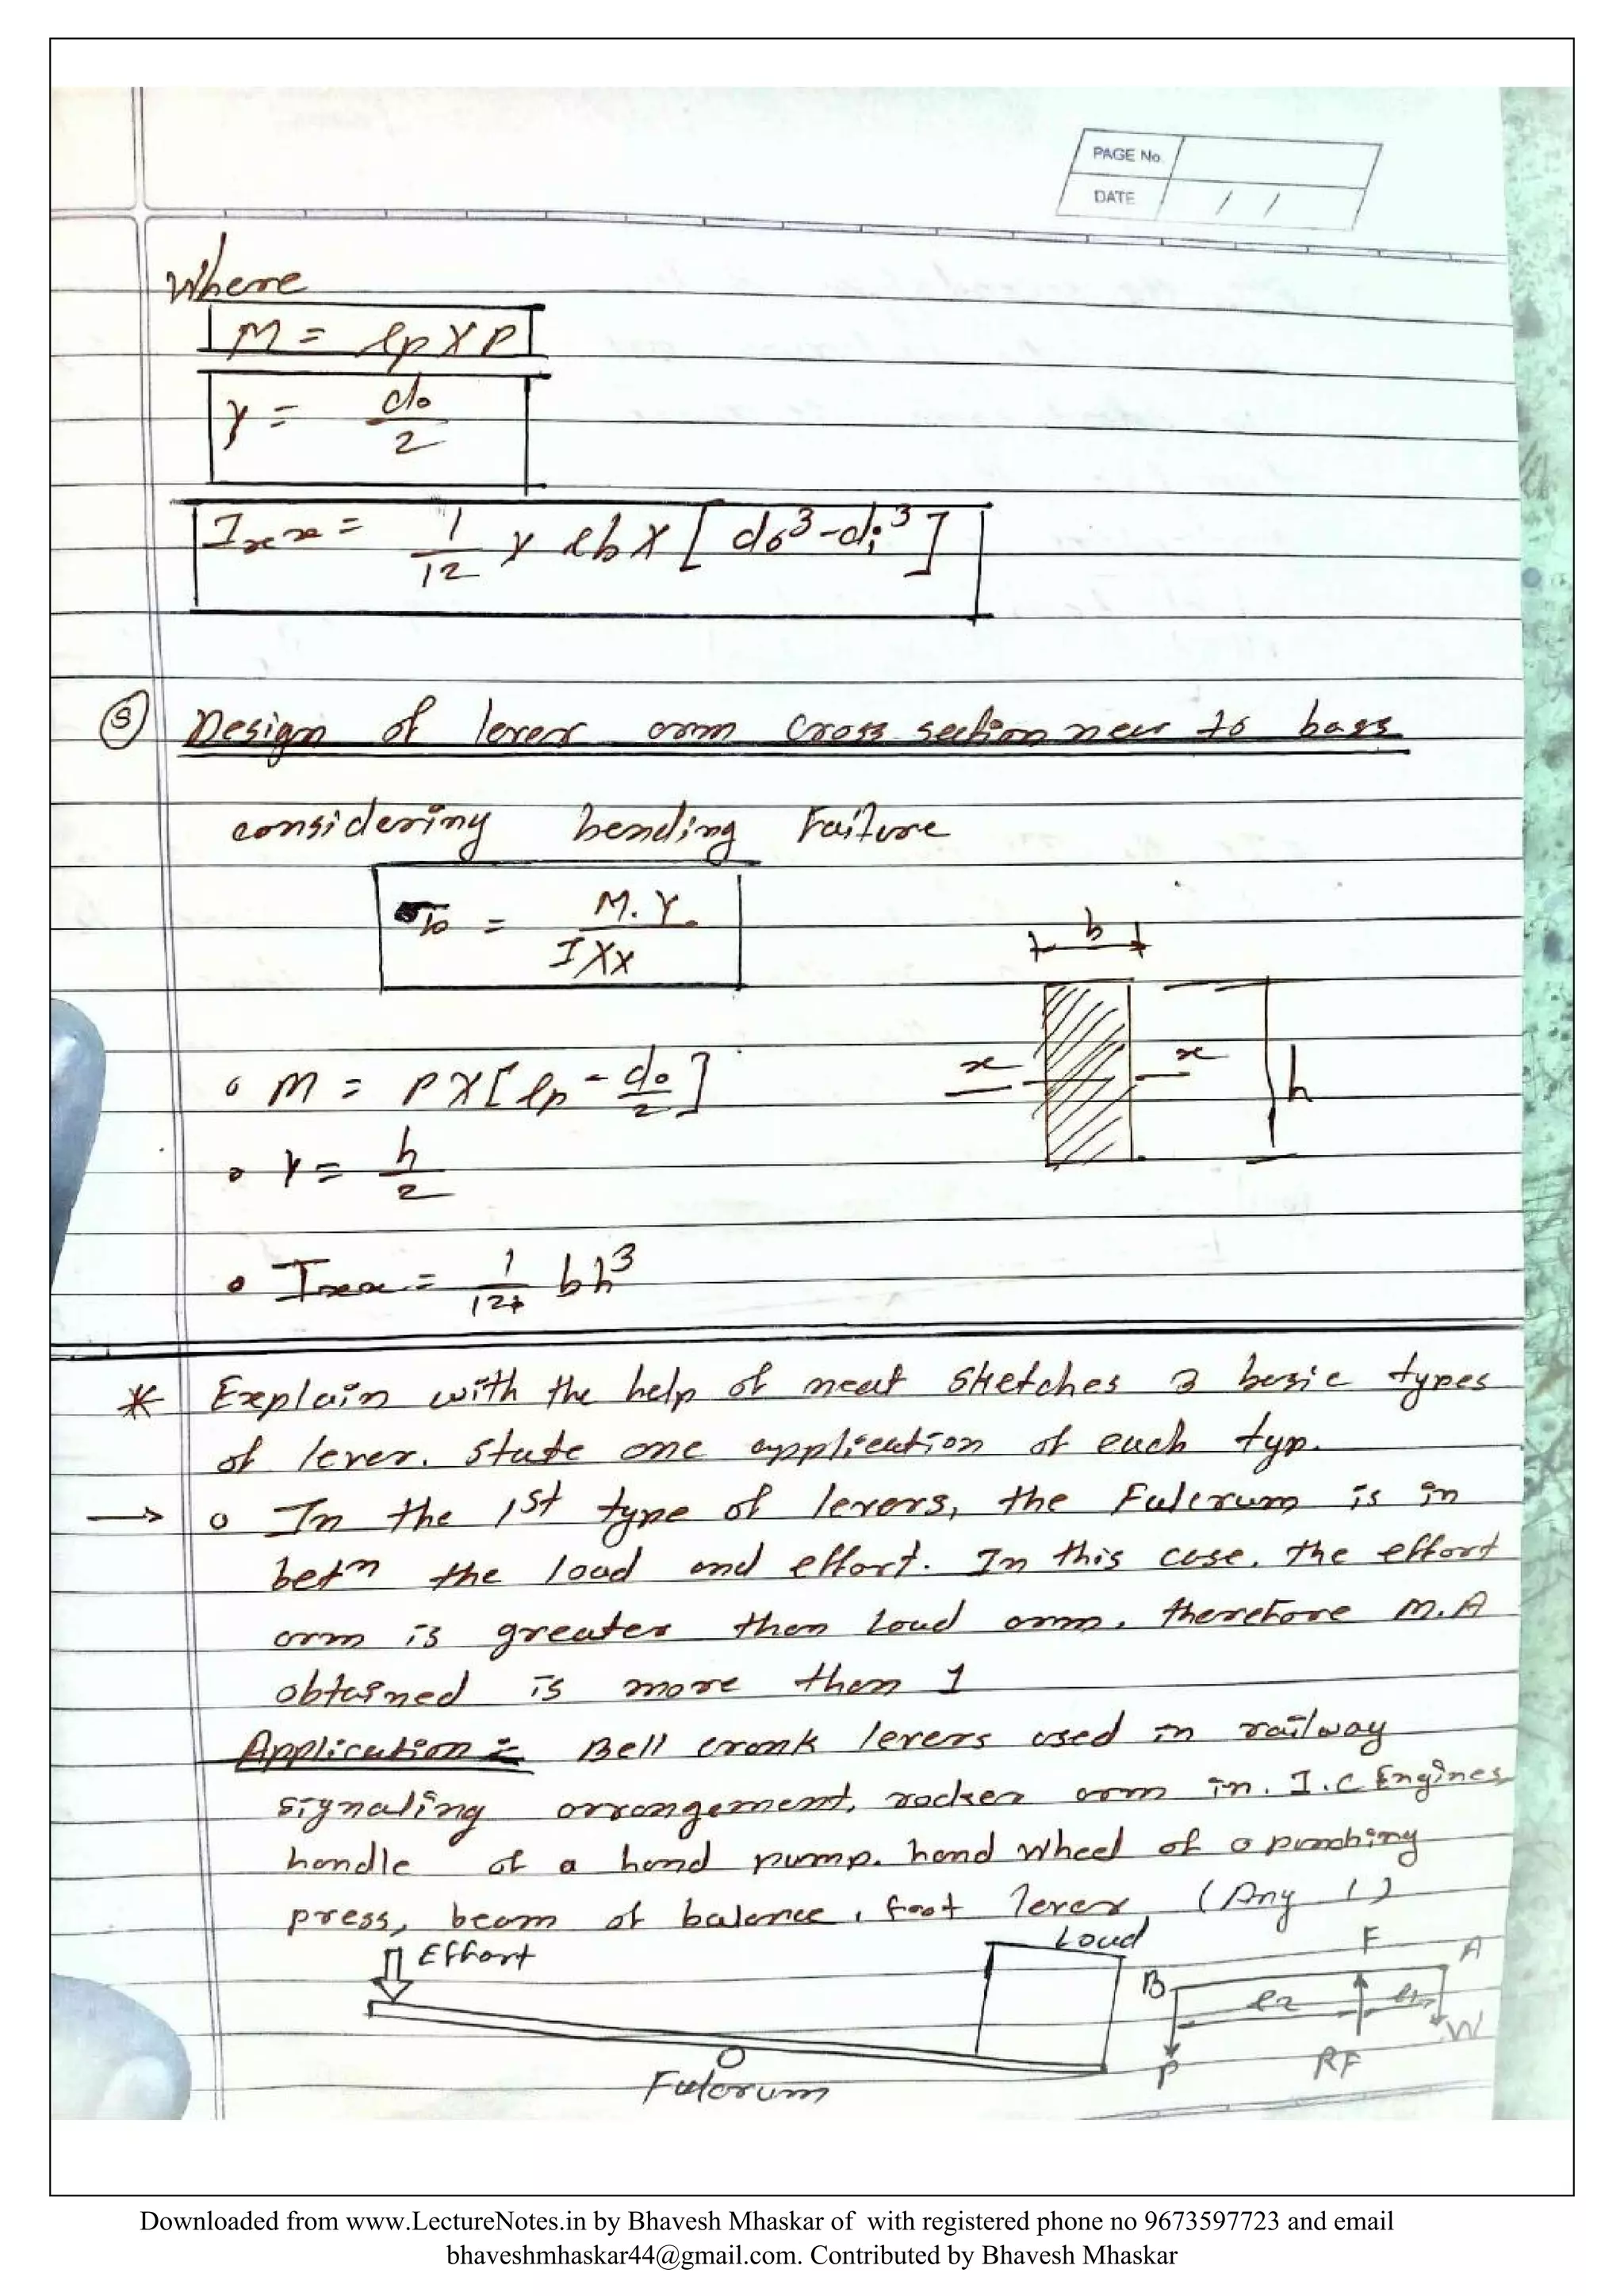 PAGE No.
DATE / /
Where
M = lp X P
Y = do/2
Ixx = 1/12 x lb X [do³-di³]
⑤ Design of lever arm cross section near to boss
considering bending Failure
σb = M.Y / IXX
b
x x h
o M = P X [lp - do/2]
o Y = h/2
o Ixx = 1/12 bh³
* Explain with the help of neat sketches 3 basic types
of lever. State one application of each typ.
→ o In the 1st type of levers, the Fulcrum is in
betn the load and effort. In this case, the effort
arm is greater than load arm, therefore M.A
obtained is more than 1
Application :- Bell crank levers used in railway
signaling arrangement, rocker arm in. I.C Engines
handle of a hand pump. hand wheel of a punching
press, beam of balance, foot lever (Any 1)
Effort Load F A
B l2 l1
W
Fulcrum P RF
Downloaded from www.LectureNotes.in by Bhavesh Mhaskar of with registered phone no 9673597723 and email
bhaveshmhaskar44@gmail.com. Contributed by Bhavesh Mhaskar